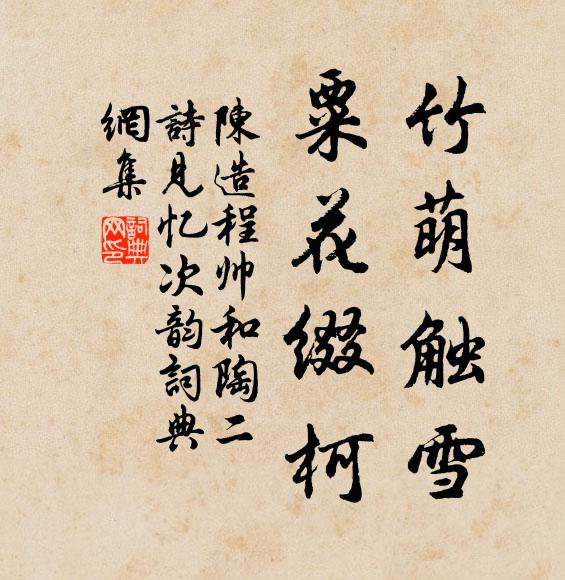 竹萌触雪
粟花缀柯
陳造程帅和陶二
詩見忆次韵詞典
網集
詞典
网印